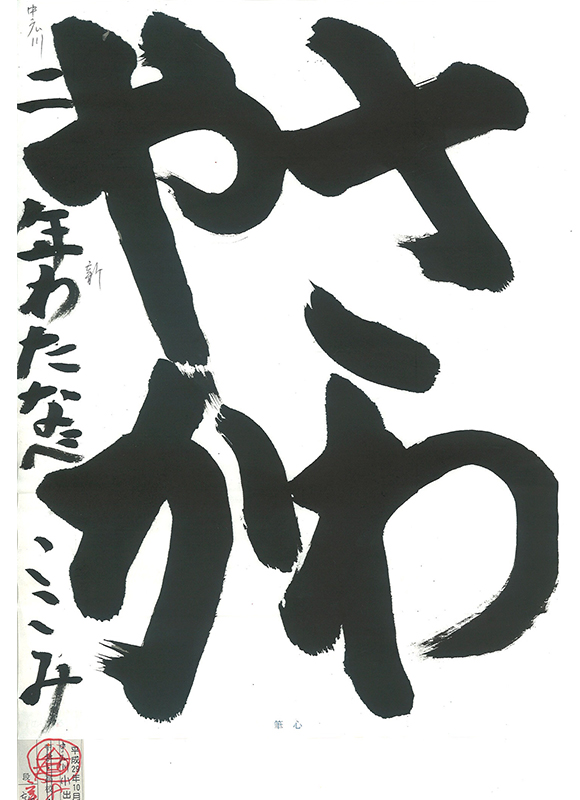 さわ
やか
二年わたなべここみ
新
筆心
平成29年10月